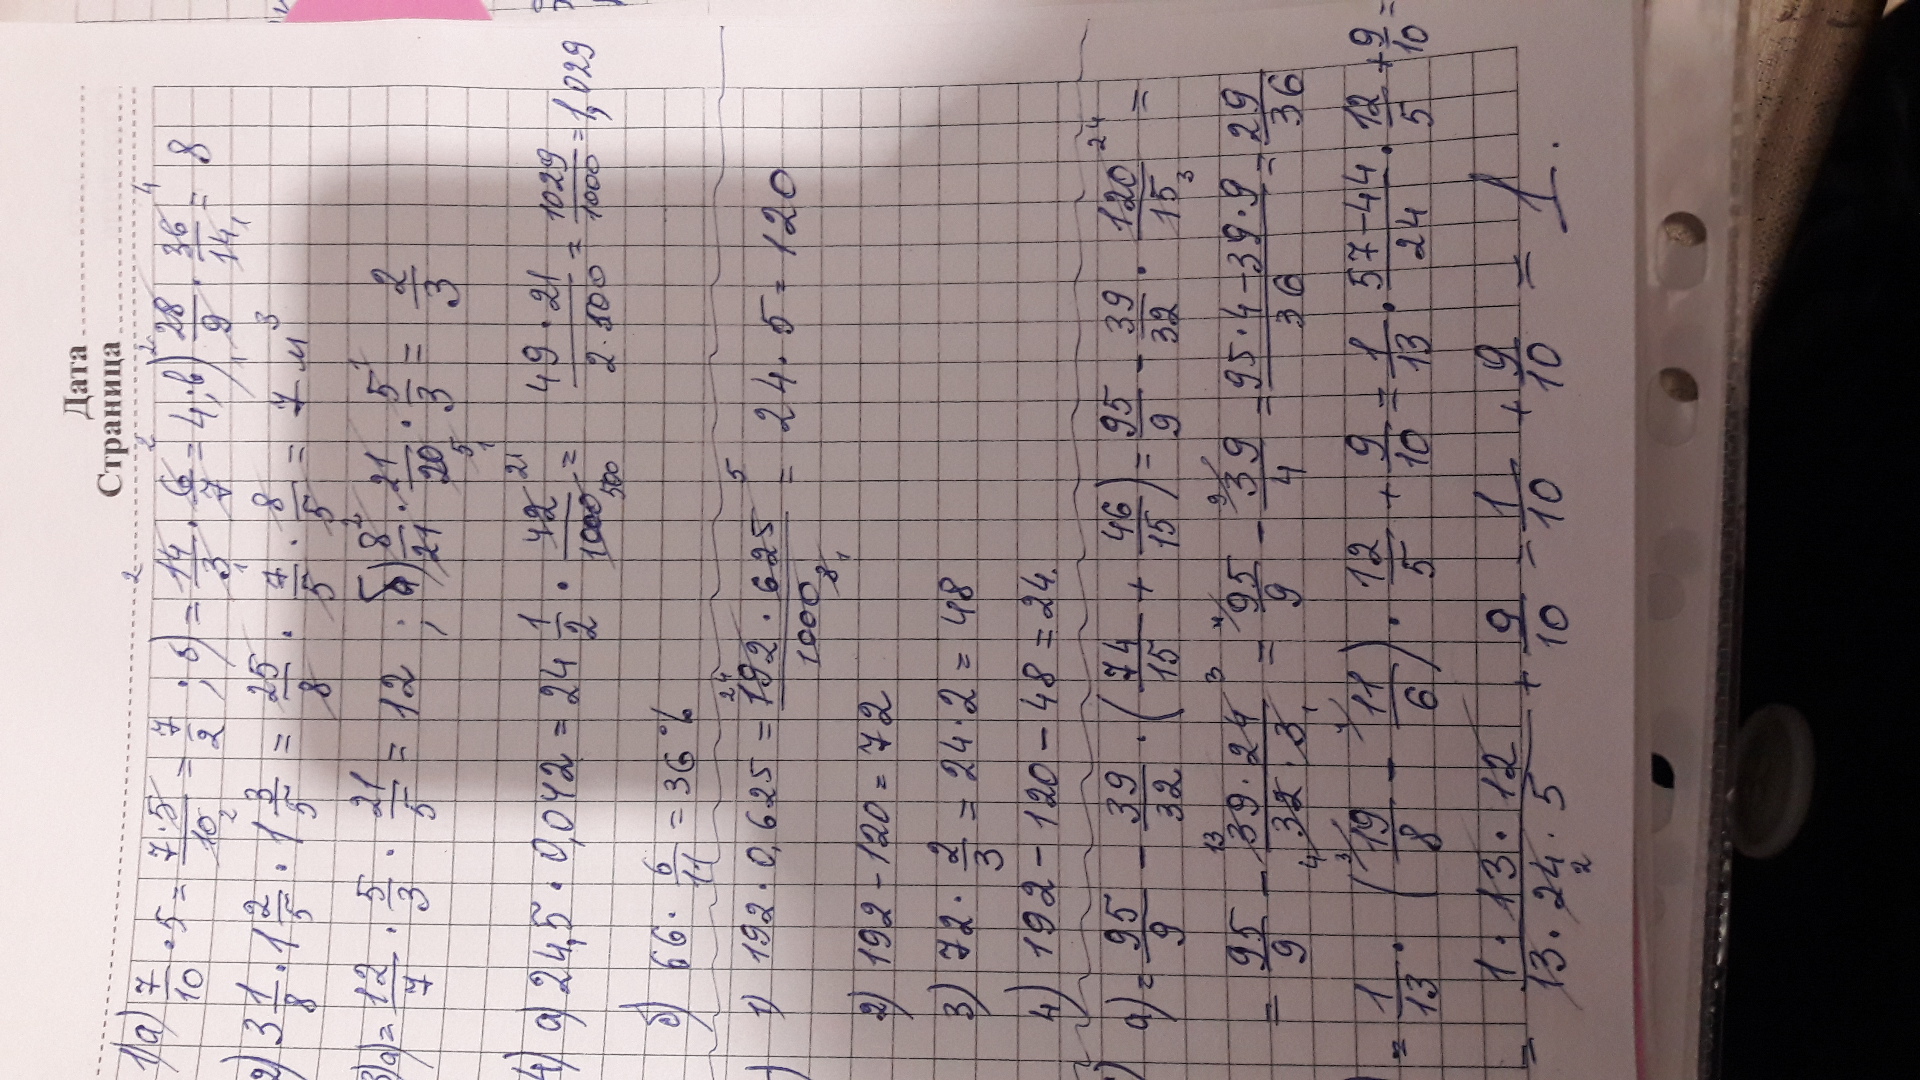 Дата
Страница
1) а) 7/10 · 5 = 7·5/10 2 = 7/2 ; б) = 14/3 1 · 6/7 2 = 4; в) 28/9 1 · 36/14 1 4 = 8
2) 3 1/8 · 1 2/5 · 1 3/5 = 25/8 · 7/5 · 8/5 = 7 м 3
3) а) = 12/7 · 5/3 · 21/5 = 12 ; б) 8/21 2 · 21/20 5 · 5/3 1 = 2/3
4) а) 24,5 · 0,042 = 24 1/2 · 42/1000 21 500 = 49·21/2·500 = 1029/1000 = 1,029
б) 66 · 6/11 = 36%
1) 192 · 0,625 = 192·625/1000 24 5 8 1 = 24·5 = 120
2) 192 - 120 = 72
3) 72 · 2/3 = 24·2 = 48
4) 192 - 120 - 48 = 24.
а) = 95/9 - 39/32 · (74/15 + 46/15) = 95/9 - 39/32 · 120/15 24 3 =
= 95/9 - 39·24/32·3 13 3 4 1 = 95/9 4 - 39/4 9 = 95·4-39·9/36 = 29/36
= 1/13 · (19/8 3 - 11/6 4) · 12/5 + 9/10 = 1/13 · 57-44/24 · 12/5 + 9/10 =
= 1·13·12/13·24·5 2 + 9/10 = 1/10 + 9/10 = 1.